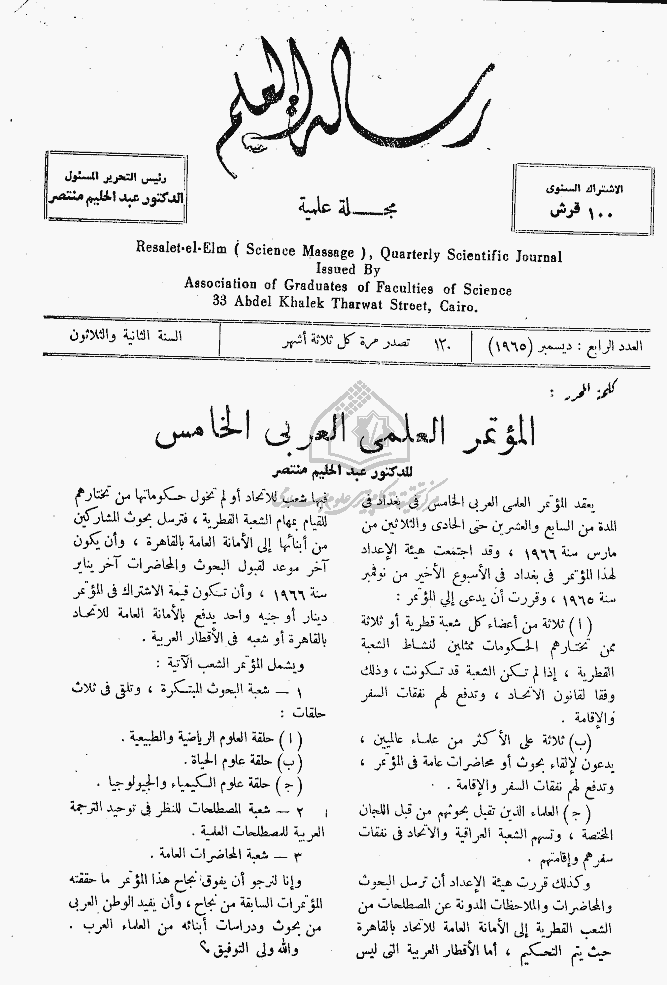 رسالة العلم
رئيس التحرير المسئول
الدكتور عبد الحليم منتصر
الاشتراك السنوى
١٠٠ قرش
مجلة علمية
Resalet-el-Elm ( Science Massage ), Quarterly Scientific Journal
Issued By
Association of Graduates of Faculties of Science
33 Abdel Khalek Tharwat Street, Cairo.
العدد الرابع : ديسمبر (١٩٦٥)
١٢٠ تصدر مرة كل ثلاثة أشهر
السنة الثانية والثلاثون
كلمة المحرر :
المؤتمر العلمى العربى الخامس
للدكتور عبد الحليم منتصر
يعقد المؤتمر العلمى العربى الخامس فى بغداد فى
المدة من السابع والعشرين حتى الحادى والثلاثين من
مارس سنة ١٩٦٦ ، وقد اجتمعت هيئة الإعداد
لهذا المؤتمر فى بغداد فى الأسبوع الأخير من نوفمبر
سنة ١٩٦٥ ، وقررت أن يدعى إلى المؤتمر :
(ا) ثلاثة من أعضاء كل شعبة قطرية أو ثلاثة
ممن تختارهم الحكومات ممثلين لنشاط الشعبة
القطرية ، إذا لم تكن الشعبة قد تكونت ، وذلك
وفقا لقانون الاتحاد ، وتدفع لهم نفقات السفر
والإقامة .
(ب) ثلاثة على الأكثر من علماء عالميين ،
يدعون لإلقاء بحوث أو محاضرات عامة فى المؤتمر ،
وتدفع لهم نفقات السفر والإقامة .
(ج) العلماء الذين تقبل بحوثهم من قبل اللجان
المختصة ، وتسهم الشعبة العراقية والاتحاد فى نفقات
سفرهم وإقامتهم .
وكذلك قررت هيئة الإعداد أن ترسل البحوث
والمحاضرات والملاحظات المدونة عن المصطلحات من
الشعب القطرية إلى الأمانة العامة للاتحاد بالقاهرة
حيث يتم التحكيم ، أما الأقطار العربية التى ليس
فيها شعب للاتحاد أو لم تخول حكوماتها من تختارهم
للقيام بمهام الشعبة القطرية ، فترسل بحوث المشاركين
من أبنائها إلى الأمانة العامة بالقاهرة ، وأن يكون
آخر موعد لقبول البحوث والمحاضرات آخر يناير
سنة ١٩٦٦ ، وأن تكون قيمة الاشتراك فى المؤتمر
دينار أو جنيه واحد يدفع بالأمانة العامة للاتحاد
بالقاهرة أو شعبه فى الأقطار العربية .
ويشمل المؤتمر الشعب الآتية :
١ — شعبة البحوث المبتكرة ، وتلقى فى ثلاث
حلقات :
(ا) حلقة العلوم الرياضية والطبيعية .
(ب) حلقة علوم الحياة .
(ج) حلقة علوم الكيمياء والجيولوجيا .
٢ — شعبة المصطلحات للنظر فى توحيد الترجمة
العربية للمصطلحات العلمية .
٣ — شعبة المحاضرات العامة .
وإنا لنرجو أن يفوق نجاح هذا المؤتمر ما حققته
المؤتمرات السابقة من نجاح ، وأن يفيد الوطن العربى
من بحوث ودراسات أبنائه من العلماء العرب .
والله ولى التوفيق ؟